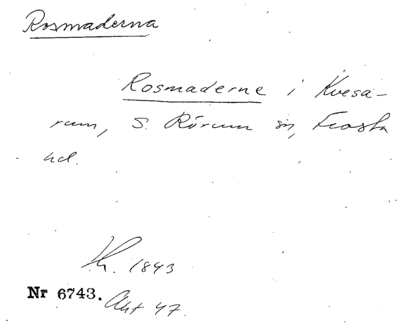 Rosmaderna
Rosmaderne i Kvesa-
rum, S. Rörum sn, Frosta
hd.
1843
Nr 6743. Akt 47.